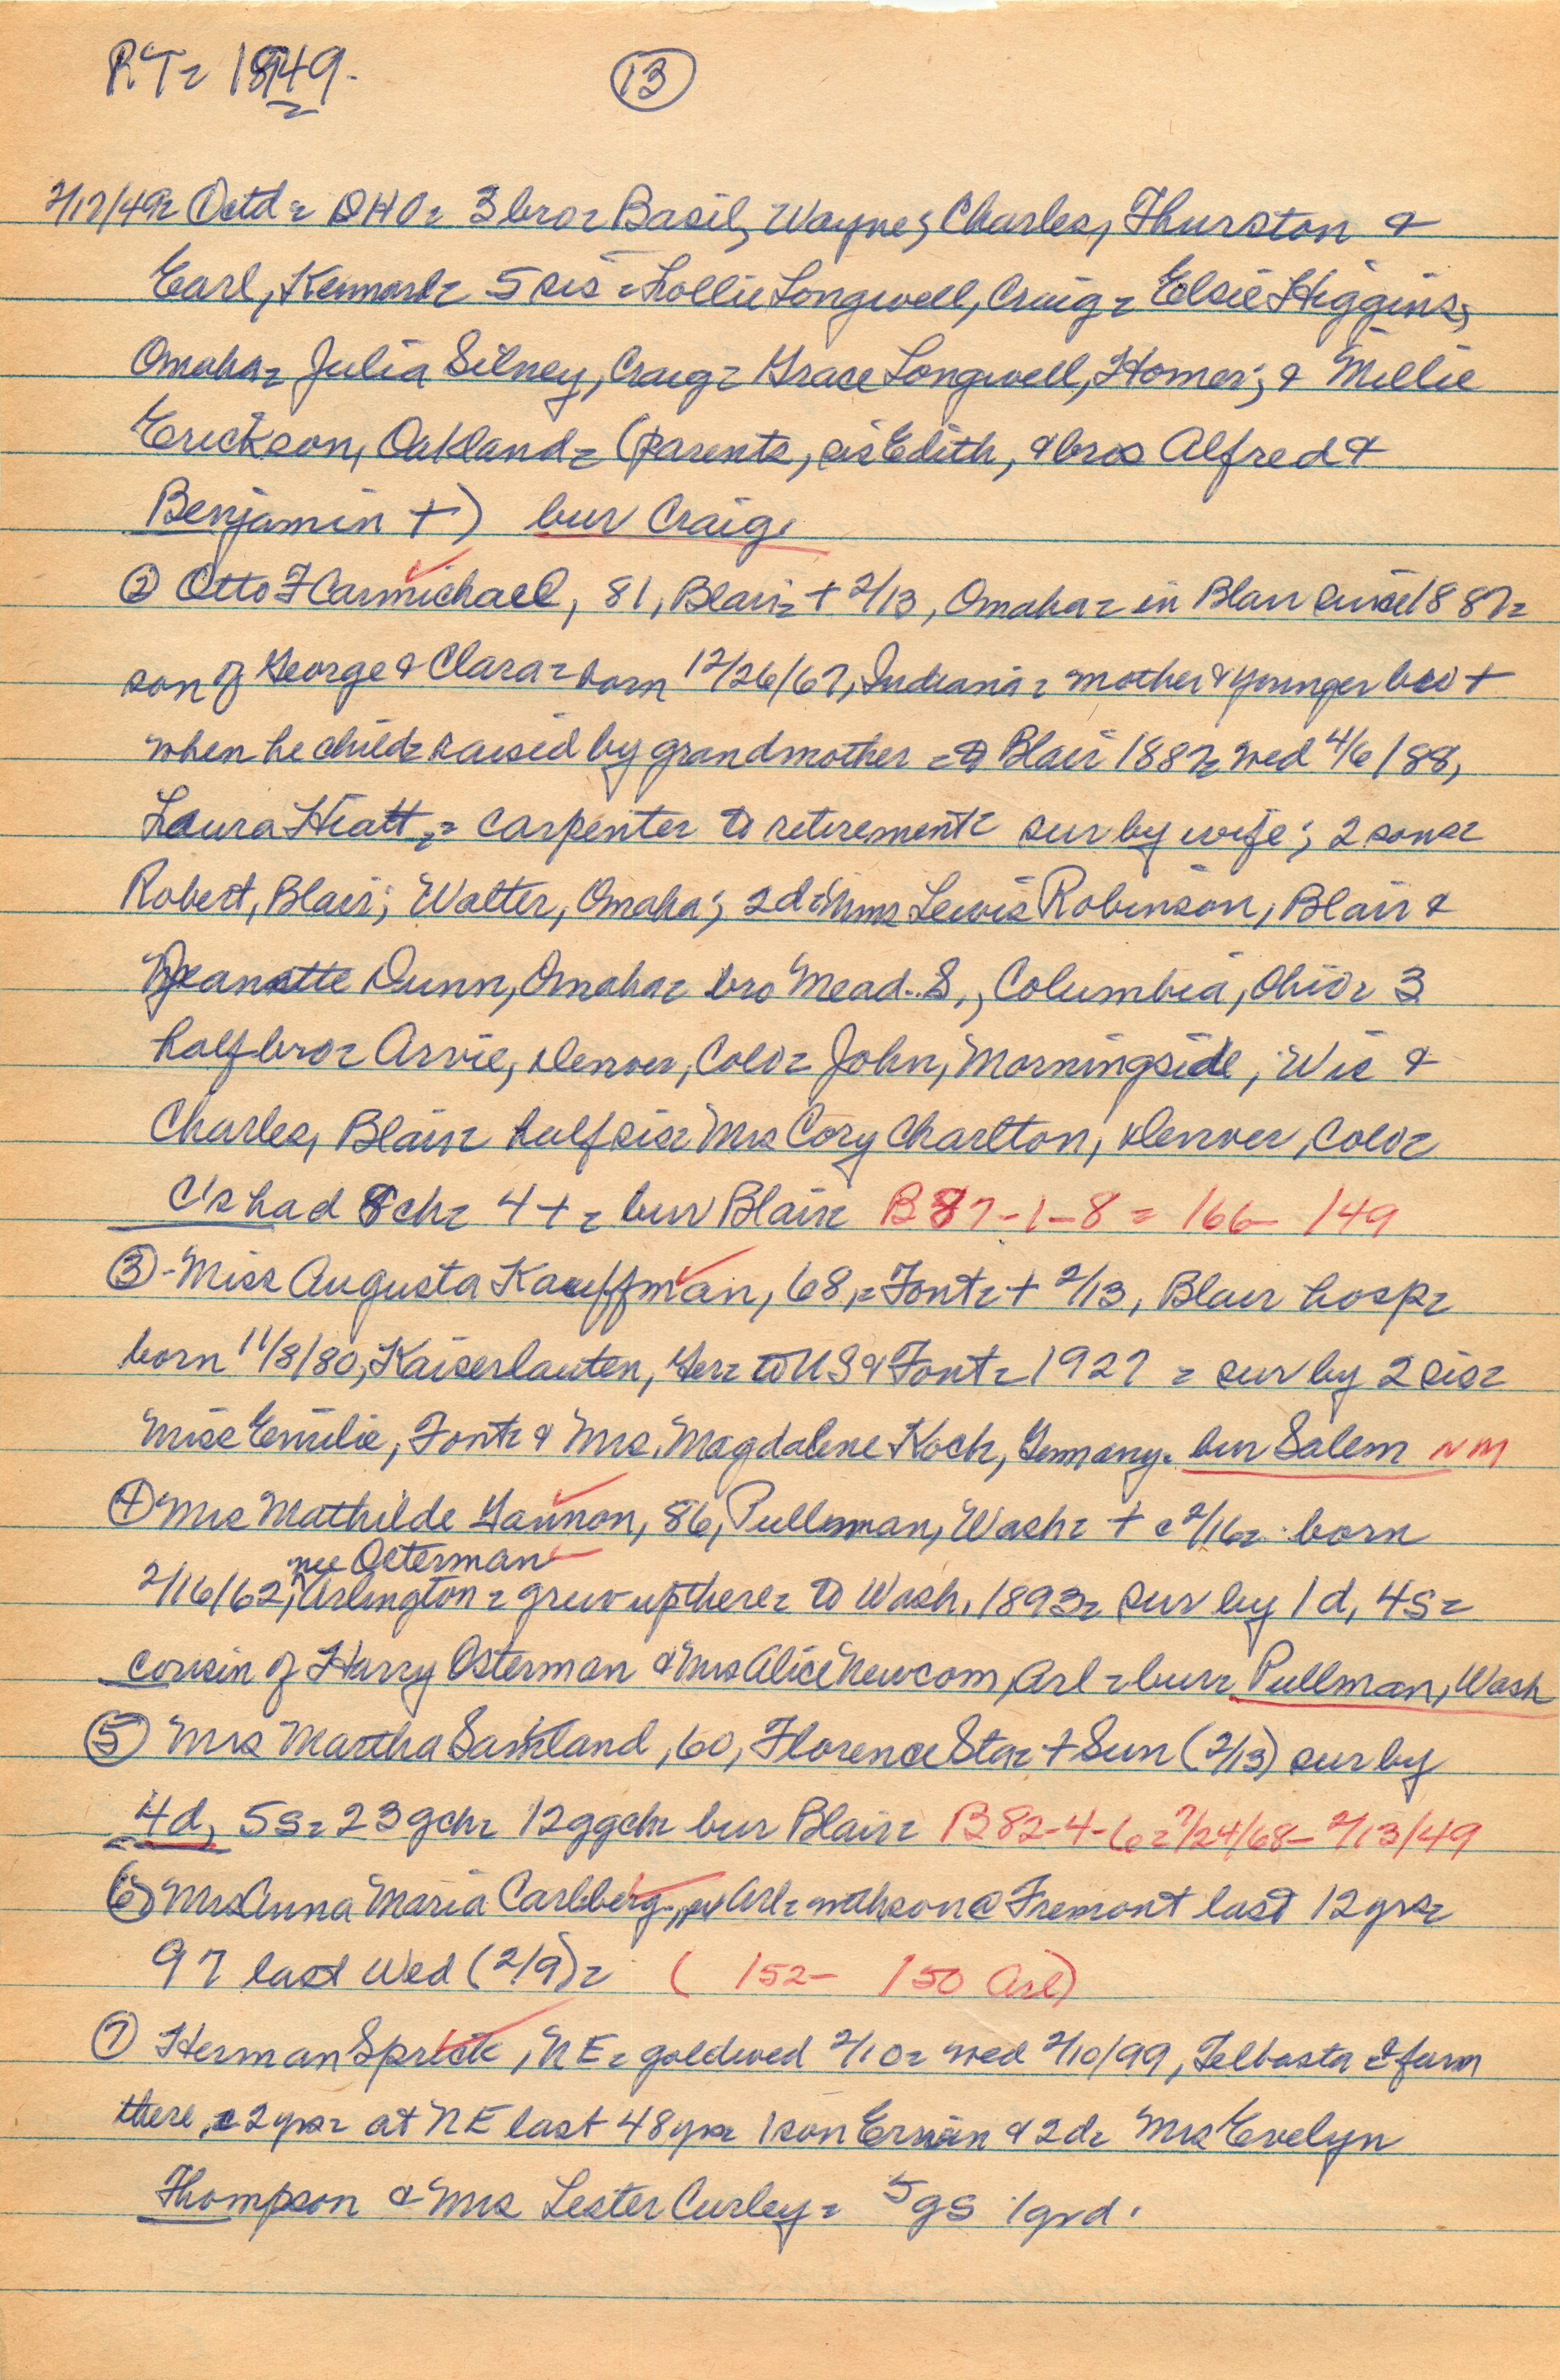 RT= 1949.
13
2/17/49= Octd= OHO= 3 bro= Basil, Wayne; Charles, Thurston &
Earl, Kennard= 5 sis = Lollie Longwell, Craig= Elsie Higgins,
Omaha= Julia Silney, Craig= Grace Longwell, Homer; & Millie
Erickson, Oakland= (parents, sis Edith, & bros Alfred &
Benjamin +) bur Craig.
② Otto F Carmichael, 81, Blair= + 2/13, Omaha= in Blair since 1887=
son of George & Clara= born 12/26/67, Indiana= mother & younger bro +
when he child= raised by grandmother = Blair 1887= wed 4/6/88,
Laura Hiatt, = carpenter to retirement= sur by wife; 2 sons=
Robert, Blair; Walter, Omaha; 2 d= Mrs Lewis Robinson, Blair &
Jeanatte Dunn, Omaha= bro Mead S., Columbia, Ohio= 3
half bro= Arvie, Denver, Colo= John, Morningside, Wis &
Charles, Blair= half sis= Mrs Cory Charlton, Denver, Colo=
C's had 8 ch= 4 + = bur Blair= B87-1-8 = 166- 149
③ Miss Augusta Kauffman, 68, = Font= + 2/13, Blair hosp=
born 11/8/80, Kaiserlauten, Ger= to US & Font= 1927 = sur by 2 sis=
Miss Emilie, Font= & Mrs. Magdalene Koch, Germany. bur Salem NM
④ Mrs Mathilde Gannon, 86, Pullman, Wash= + c 2/16= born
nee Osterman
2/16/62, Arlington = grew up there= to Wash. 1893= sur by 1 d, 4s=
cousin of Harry Osterman & Mrs Alice Newcom, Arl = bur= Pullman, Wash
⑤ Mrs Martha Samland, 60, Florence Sta= + Sun (2/13) sur by
4d, 5s= 23 gch= 12 ggch= bur Blair= B82-4-6= 7/24/68- 2/13/49
⑥ Mrs Anna Maria Carlberg, Arl= with son @ Fremont last 12 yrs=
97 last Wed (2/9)= ( 152- 150 Arl)
⑦ Herman Sprick, NE= gold wed 2/10= wed 2/10/99, Telbasta & farm
there, c 2 yrs= at NE last 48 yrs= 1 son Erwin & 2d= Mrs Evelyn
Thompson & Mrs Lester Curley= 5 gs 1 grd.